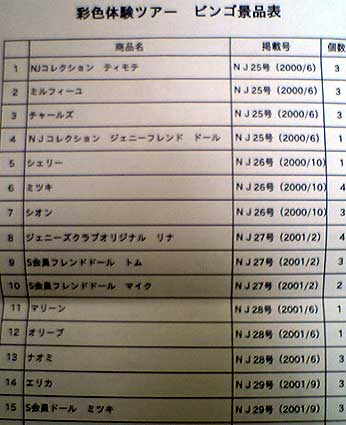 彩色体験ツアー ビンゴ景品表
商品名 掲載号 個数
1 NJコレクション ティモテ NJ25号（2000/6） 3
2 ミルフィーユ NJ25号（2000/6） 3
3 チャールズ NJ25号（2000/6） 3
4 NJコレクション ジェニーフレンド ドール NJ25号（2000/6） 1
5 シェリー NJ26号（2000/10） 1
6 ミツキ NJ26号（2000/10） 4
7 シオン NJ26号（2000/10） 3
8 ジェニーズクラブオリジナル リナ NJ27号（2001/2） 4
9 S会員フレンドドール トム NJ27号（2001/2） 3
10 S会員フレンドドール マイク NJ27号（2001/2） 2
11 マリーン NJ28号（2001/6） 1
12 オリーブ NJ28号（2001/6） 1
13 ナオミ NJ28号（2001/6） 3
14 エリカ NJ29号（2001/9） 3
15 S会員ドール ミツキ NJ29号（2001/9） 3